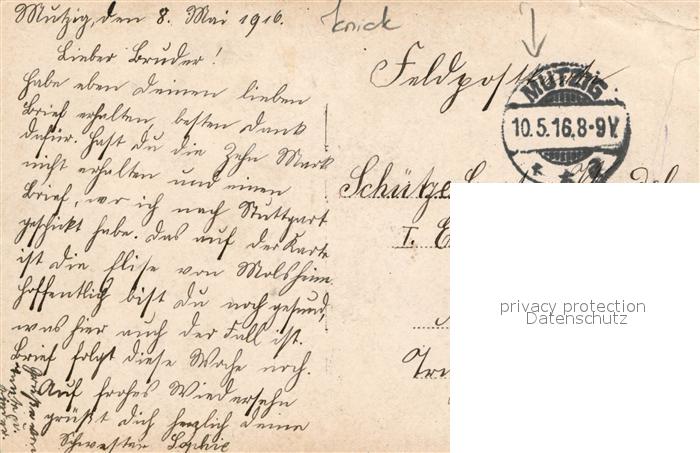 Mutzig, den 8. Mai 1916.
Lieber Bruder!
Habe eben deinen lieben
Brief erhalten, besten Dank
dafür. Hast du die Zehn Mark
nicht erhalten und einen
Brief, wo ich nach Stuttgart
geschickt habe. Das auf der Karte
ist die Elise von Molsheim.
Hoffentlich bist du noch gesund,
was hier auch der Fall ist.
Brief folgt diese Woche noch.
Auf frohes Wiedersehn
grüßt dich herzlich deine
Schwester Sophie
Grüße von
knick
Feldpost
MUTZIG
10.5.16.8-9V.
Schütze
I. E
privacy protection
Datenschutz